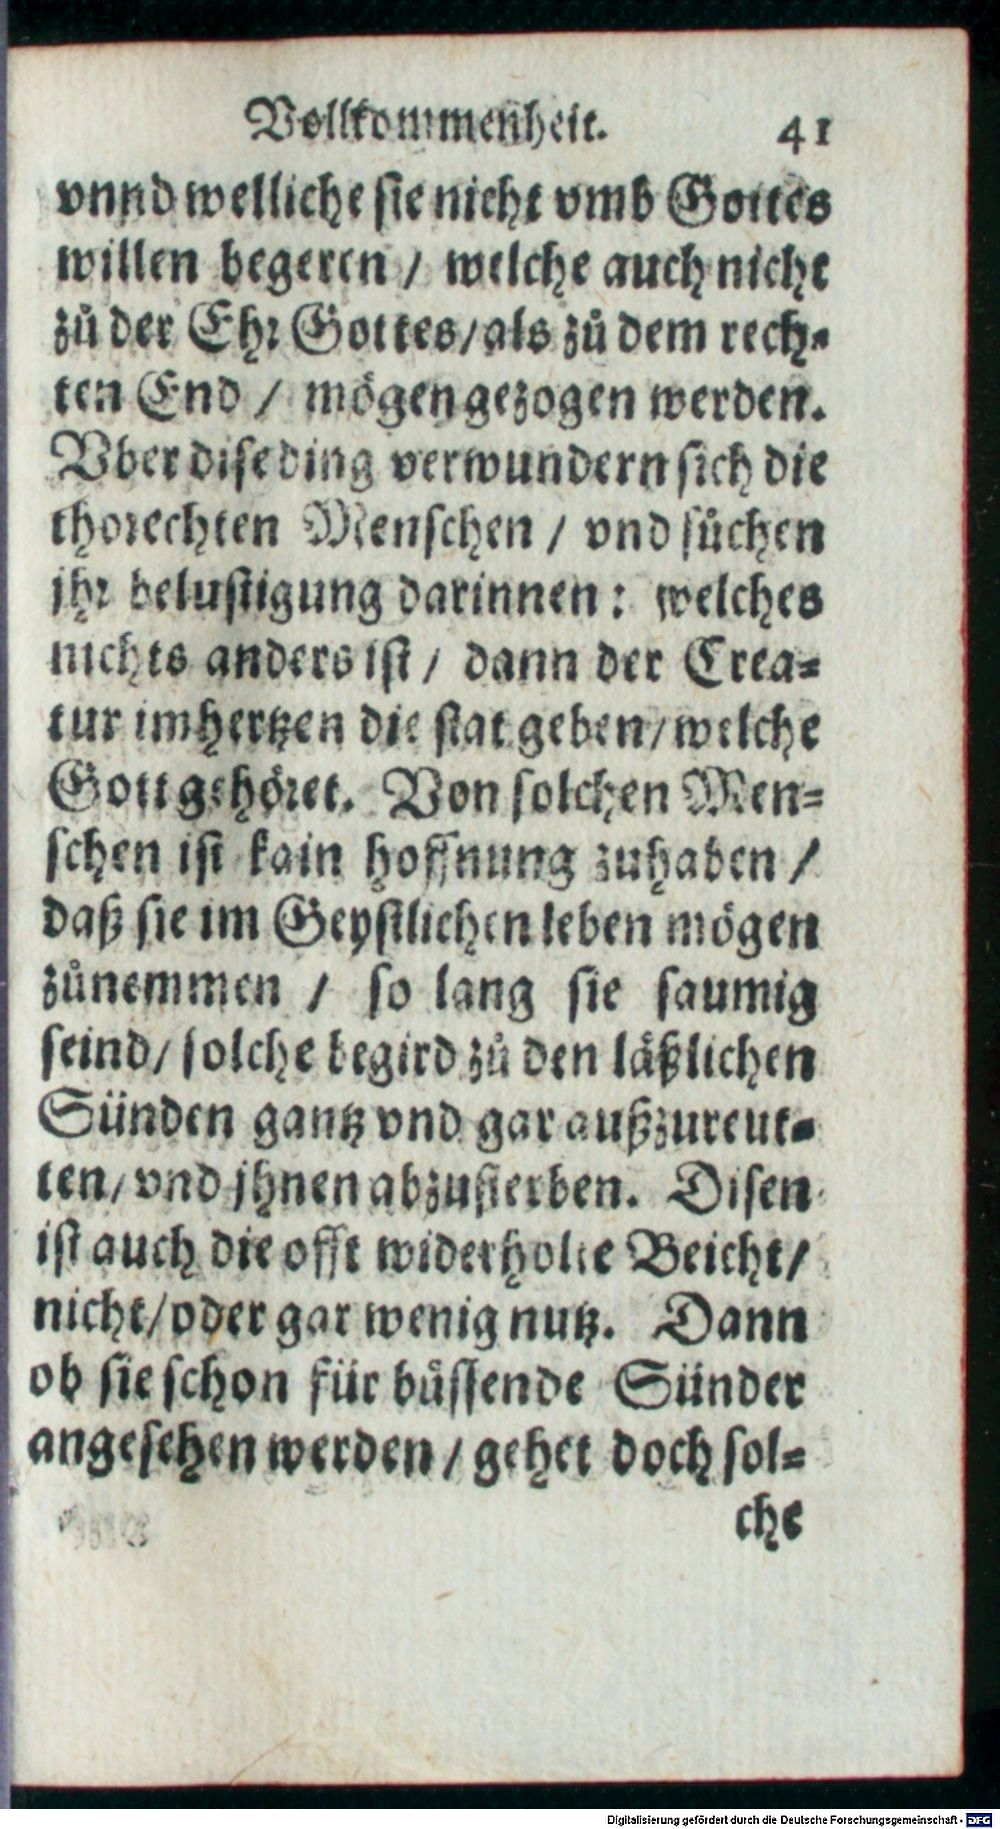 Vollkommenheit. 41
vnnd welliche sie nicht vmb Gottes
willen begeren / welche auch nicht
zů der Ehr Gottes / als zů dem rech-
ten End / mögen gezogen werden.
Vber dise ding verwundern sich die
thorechten Menschen / vnd sůchen
jhr belustigung darinnen: welches
nichts anders ist / dann der Crea-
tur im hertzen die stat geben / welche
Gott gehöret. Von solchen Men-
schen ist kain hoffnung zuhaben /
daß sie im Geystlichen leben mögen
zůnemmen / so lang sie saumig
seind / solche begird zů den läßlichen
Sünden gantz vnd gar außzureut-
ten / vnd jhnen abzusterben. Disen
ist auch die offt widerholte Beicht /
nicht / oder gar wenig nutz. Dann
ob sie schon für bůssende Sünder
angesehen werden / gehet doch sol-
che
Digitalisierung gefördert durch die Deutsche Forschungsgemeinschaft - DFG